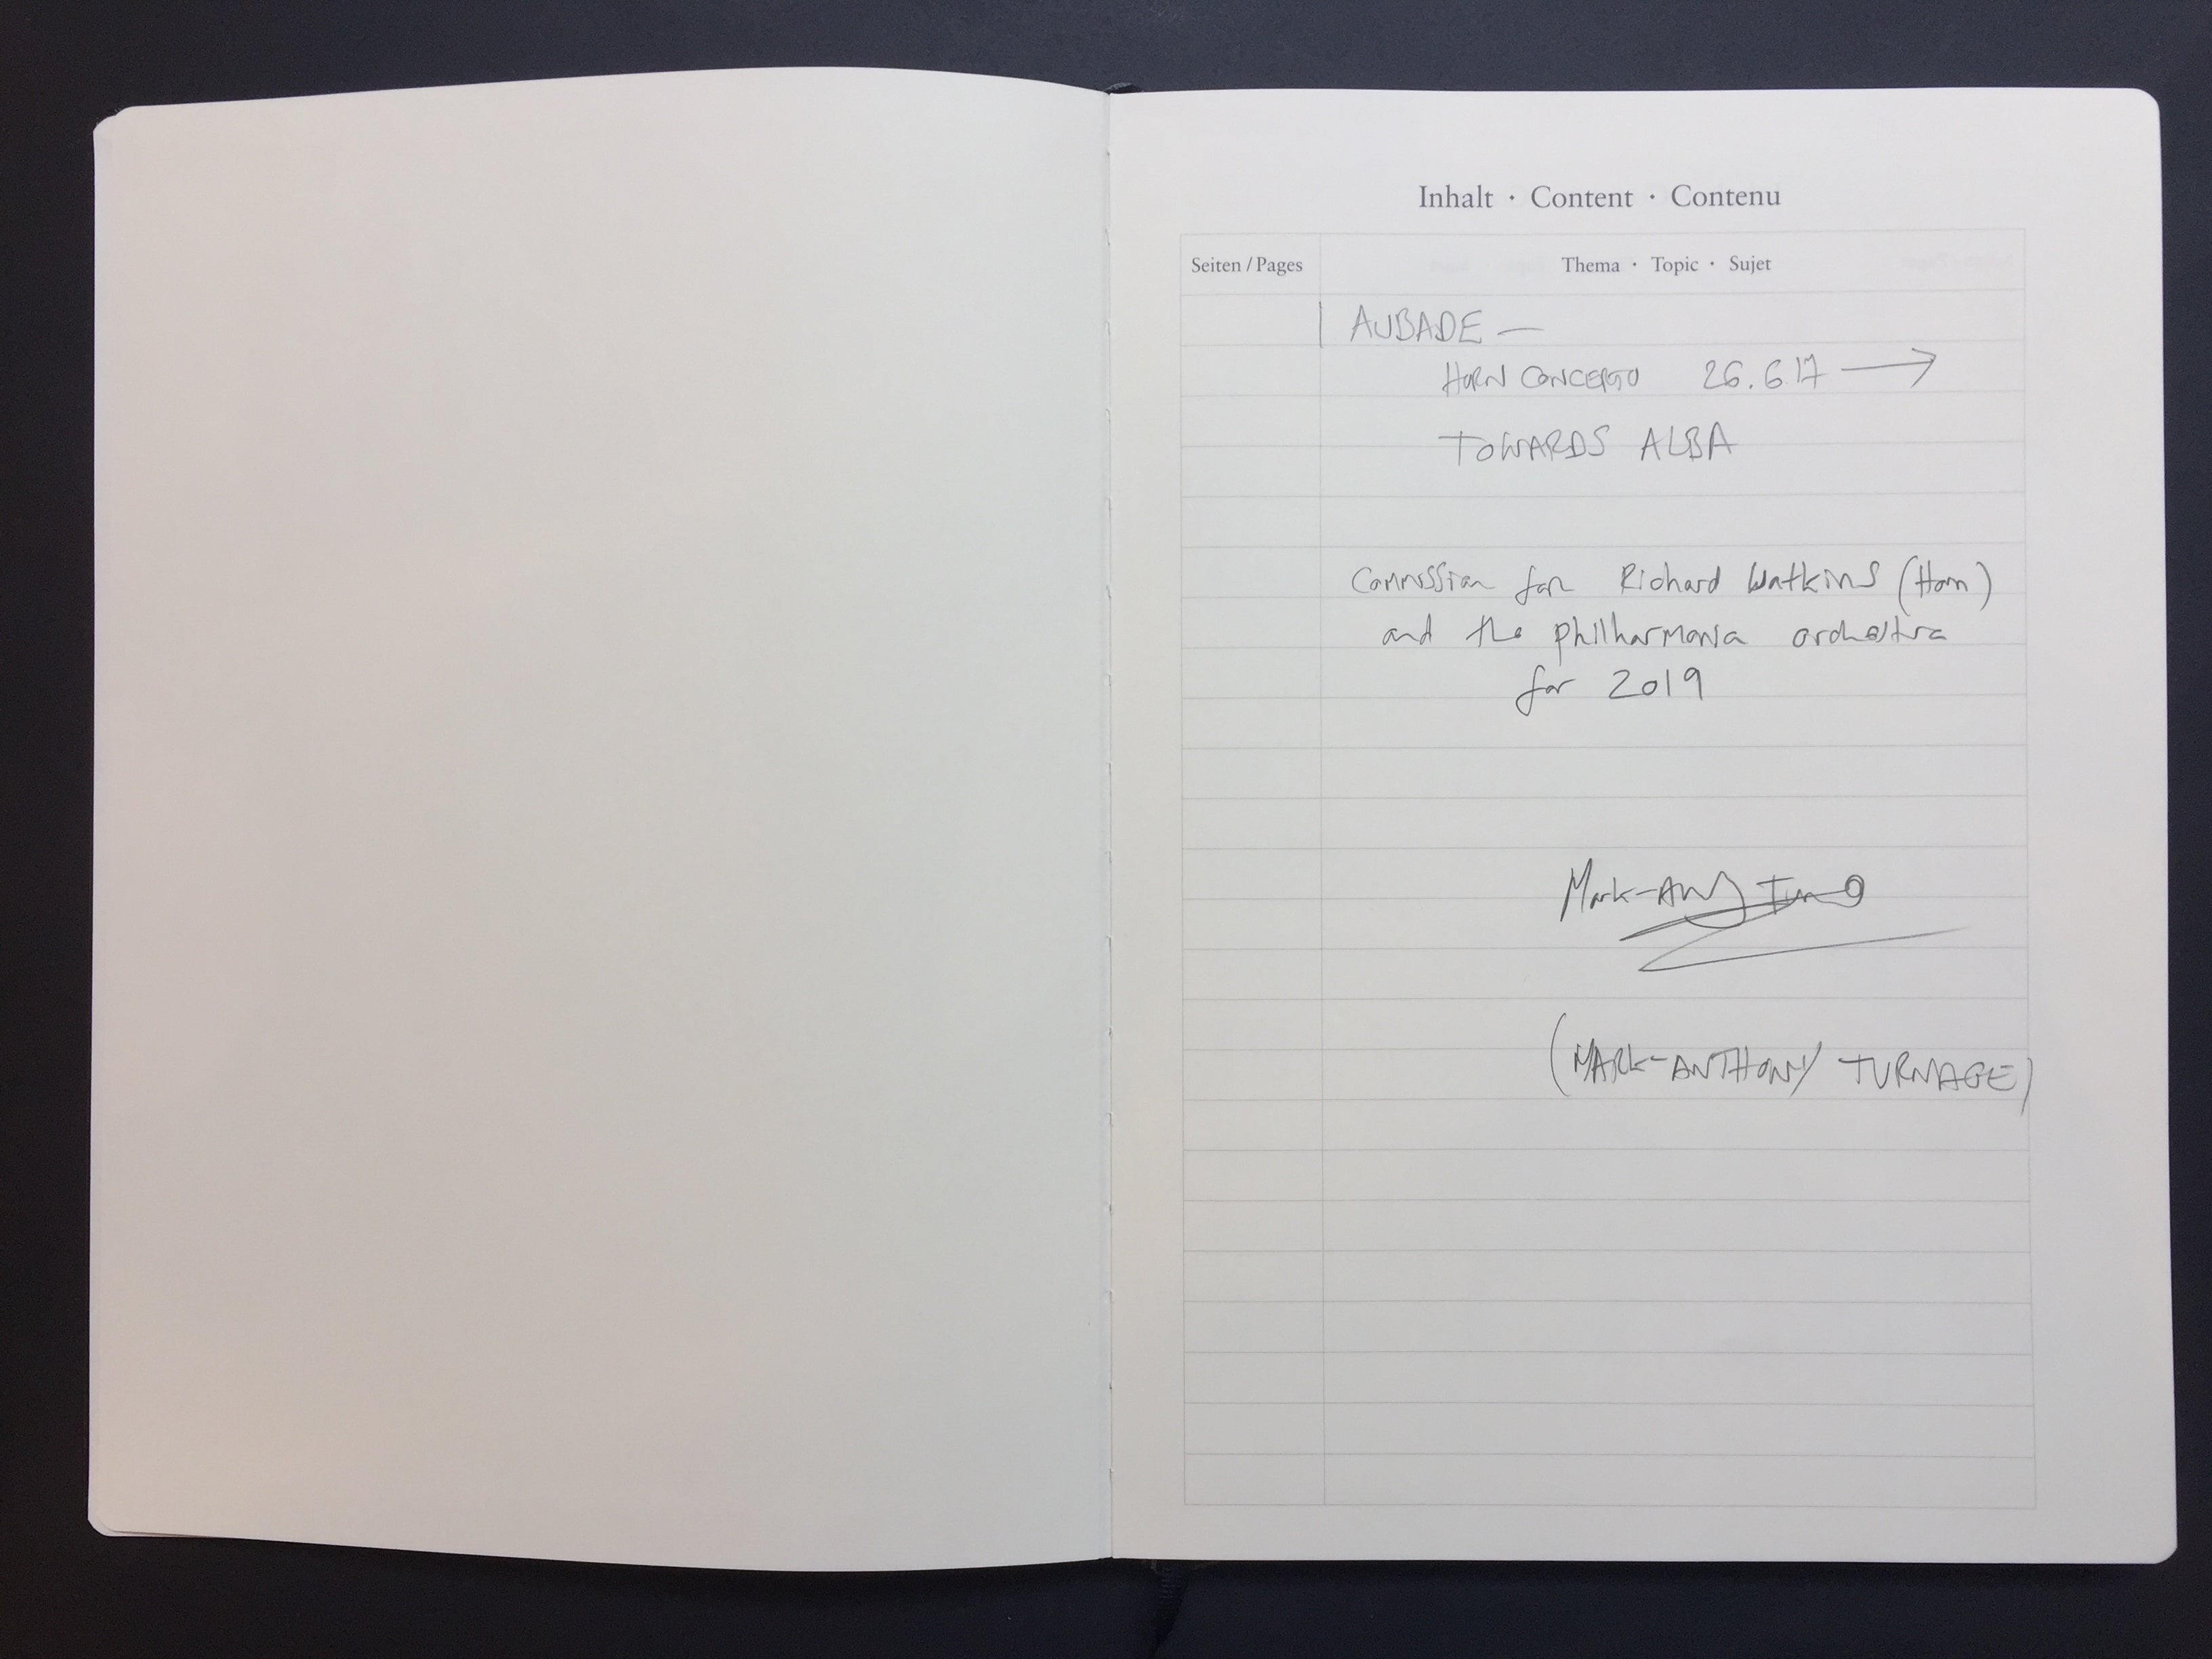 Inhalt · Content · Contenu
Seiten / Pages
Thema · Topic · Sujet
| AUBADE —
HORN CONCERTO 26.6.17 →
TOWARDS ALBA
Commission for Richard Watkins (Horn)
and the philharmonia orchestra
for 2019
Mark-Anthony Turnage
(MARK-ANTHONY TURNAGE)